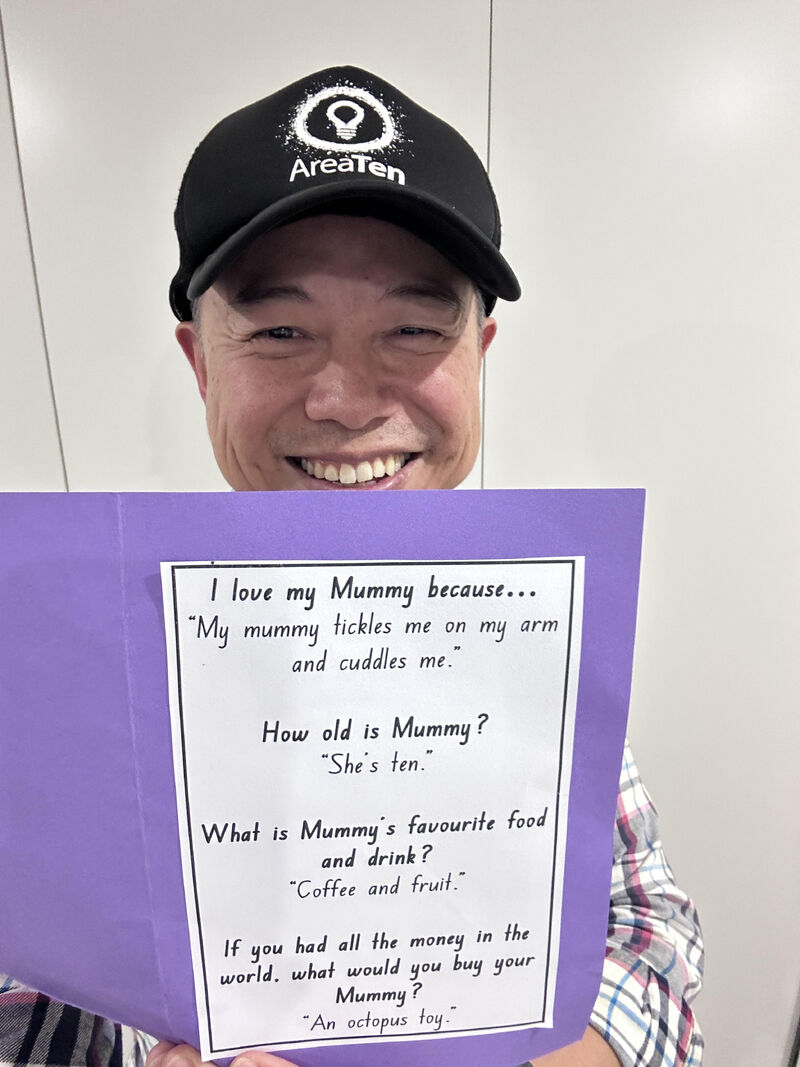 AreaTen
I love my Mummy because...
"My mummy tickles me on my arm
and cuddles me."
How old is Mummy?
"She's ten."
What is Mummy's favourite food
and drink?
"Coffee and fruit."
If you had all the money in the
world. what would you buy your
Mummy?
"An octopus toy."